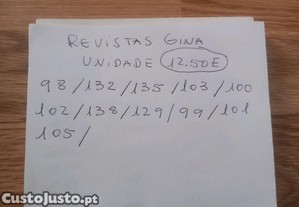 REVISTAS GINA
UNIDADE 12.50E
98/132/135/103/100
102/138/129/99/101
105/
CustoJusto.pt